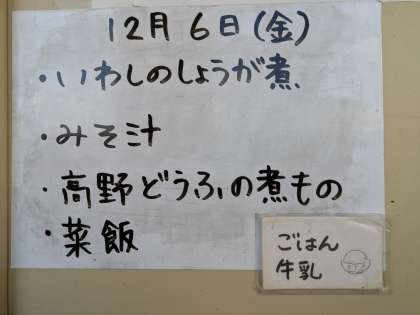 12月6日(金)
・いわしのしょうが煮
・みそ汁
・高野どうふの煮もの
・菜飯
ごはん
牛乳